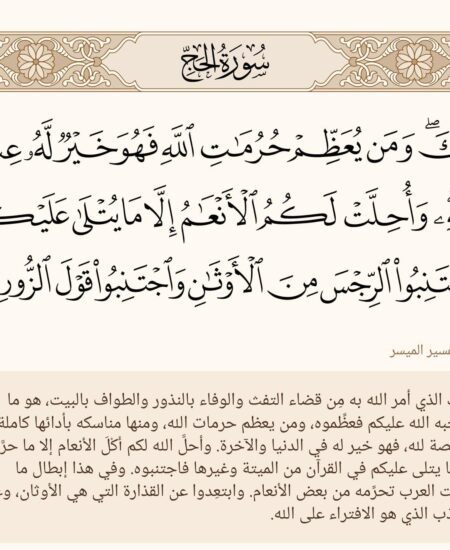 سُورَةُ الحَجِّ
ۖ وَمَن يُعَظِّمْ حُرُمَٰتِ ٱللَّهِ فَهُوَ خَيْرٌ لَّهُۥ
وَأُحِلَّتْ لَكُمُ ٱلْأَنْعَٰمُ إِلَّا مَا يُتْلَىٰ
ٱلرِّجْسَ مِنَ ٱلْأَوْثَٰنِ وَٱجْتَنِبُوا۟ قَوْلَ ٱلزُّورِ
الميسر
الذي أمر الله به مِن قضاء التفث والوفاء بالنذور والطواف بالبيت، هو ما
الله عليكم فعظِّموه، ومن يعظم حرمات الله، ومنها مناسكه بأدائها كاملة
لله، فهو خير له في الدنيا والآخرة. وأحلَّ الله لكم أَكْلَ الأنعام إلا ما
يتلى عليكم في القرآن من الميتة وغيرها فاجتنبوه. وفي هذا إبطال ما
العرب تحرِّمه من بعض الأنعام. وابتعِدوا عن القذارة التي هي الأوثان،
الذي هو الافتراء على الله.